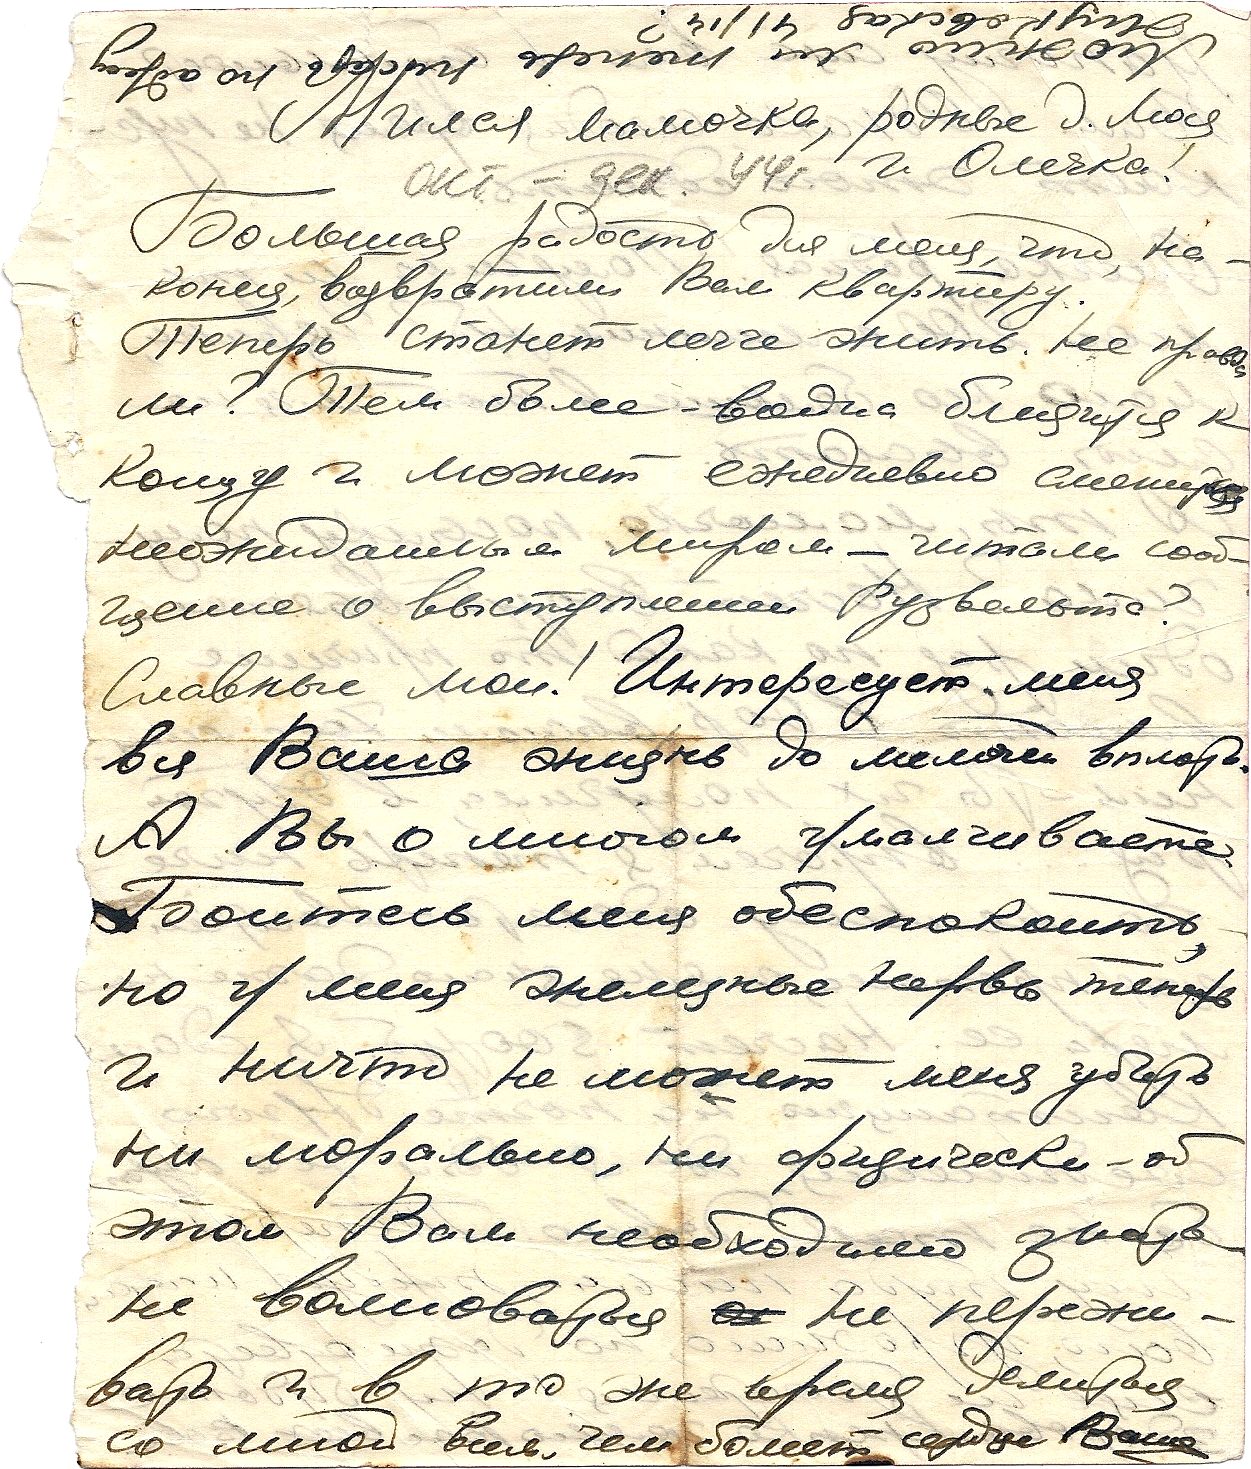 Можно ли теперь писать по адресу
Жуковская 41/14?
Милая мамочка, родные д. Мося
и Олечка!
окт. – дек. 44г.
Большая радость для меня, что, на-
конец, возвратили Вам квартиру.
Теперь станет легче жить. Не правда
ли? Тем более – война близится к
концу и может ежедневно смениться
неожиданным миром – читали сооб-
щение о выступлении Рузвельта?
Славные мои! Интересует меня
вся Ваша жизнь до мелочей вплоть.
А Вы о многом умалчиваете.
Боитесь меня обеспокоить,
но у меня железные нервы теперь
и ничто не может меня убить
ни морально, ни физически – об
этом Вам необходимо знать
не волноваться не пережи-
вать и в то же время делиться
со мной всем, чем болеет сердце Ваше